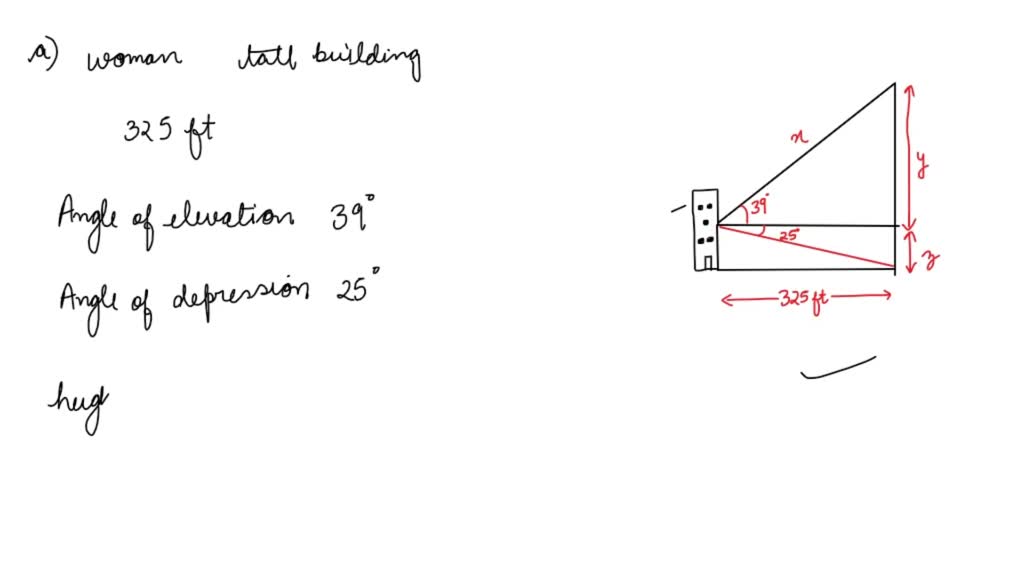 a) woman tall building
325 ft
Angle of elevation 39°
Angle of depression 25°
heig
x
y
39°
25
z
325 ft